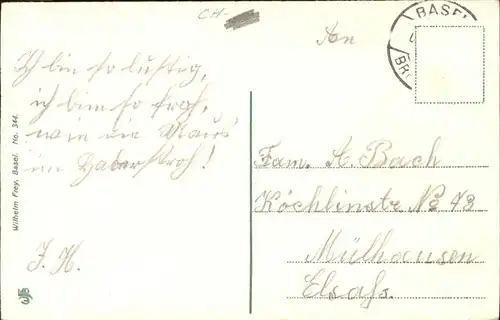 CH-
An
BASEL
BR
Ich bin so lustig,
ich bin so froh,
wie die Maus
im Haberstroh!
J. H.
Fam. A. Bach
Köchlinstr No 43
Mülhausen
Elsaß.
Wilhelm Frey, Basel. No. 344.